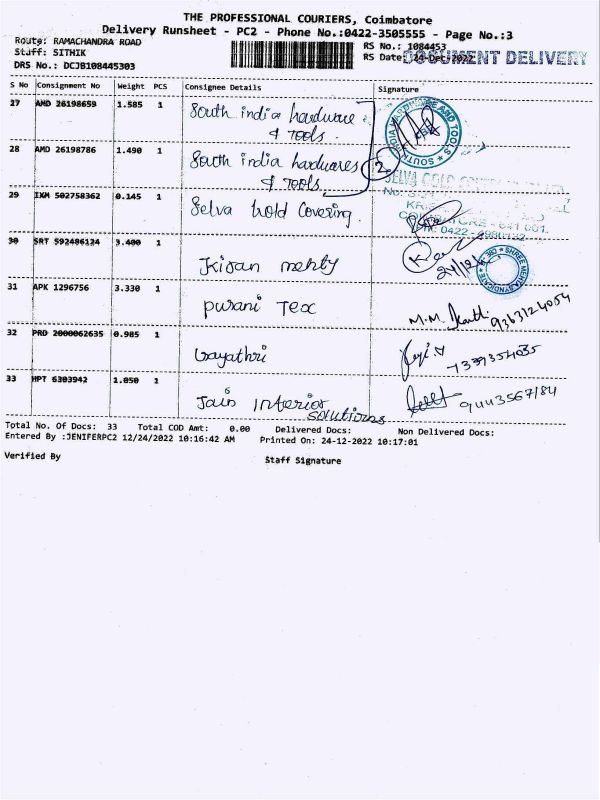 THE PROFESSIONAL COURIERS, Coimbatore
Delivery Runsheet - PC2 - Phone No.:0422-3505555 - Page No.:3
Route: RAMACHANDRA ROAD
RS No.: 1084453
Staff: SITHIK
RS Date: 24-Dec-2022
DOCUMENT DELIVERY
DRS No.: DCJB108445303
S No Consignment No Weight PCS Consignee Details Signature
27 AMD 26198659 1.585 1 South india hardware
& Tools.
28 AMD 26198786 1.490 1 South india hardwares
& Tools
2
SOUTH INDIA HARDWARE AND TOOLS
29 IXM 502758362 0.145 1 Selva Gold Covering.
SELVA GOLD
COIMBATORE - 641 001.
PH: 0422 -
30 SRT 592486124 3.400 1
Kiran mehty
24/12/
SHREE MEHTA SYNDICATE
31 APK 1296756 3.330 1
Purani Tex
M.M. 9363124054
32 PRD 2000062635 0.985 1
Gayathri
7339354035
33 HPT 6303942 1.050 1
Jain Interior
solutions
9443567184
Total No. Of Docs: 33 Total COD Amt: 0.00 Delivered Docs: Non Delivered Docs:
Entered By :JENIFERPC2 12/24/2022 10:16:42 AM Printed On: 24-12-2022 10:17:01
Verified By Staff Signature